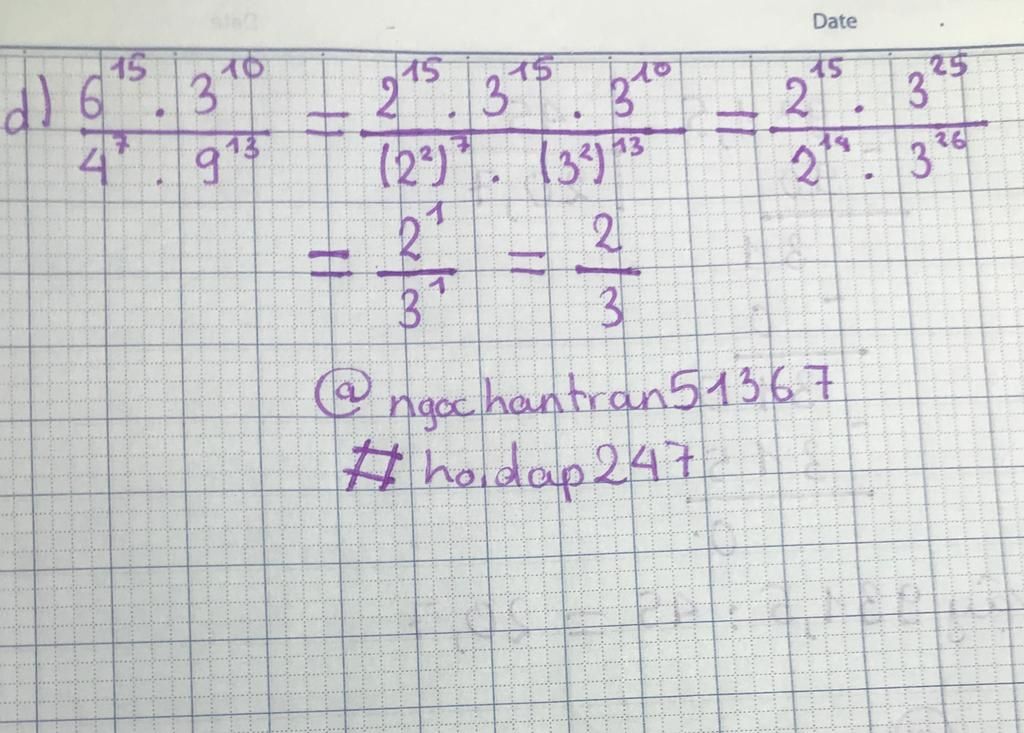 Date
d) 6^15 . 3^10 / 4^7 . 9^13 = 2^15 . 3^15 . 3^10 / (2^2)^7 . (3^2)^13 = 2^15 . 3^25 / 2^14 . 3^26
= 2^1 / 3^1 = 2 / 3
@ngochantran51367
#hoidap247